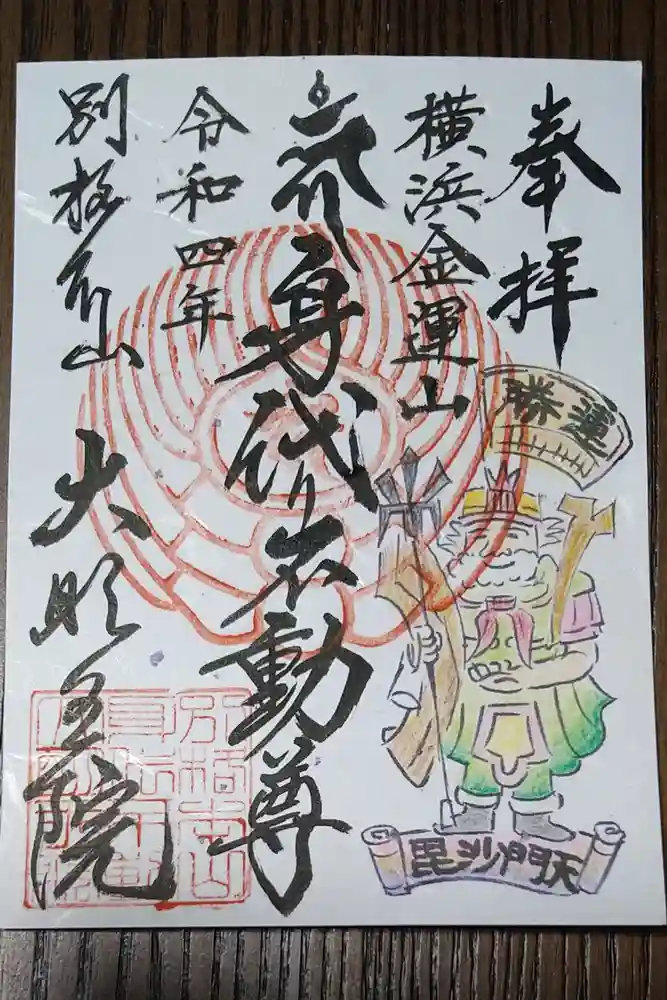 奉拝
横浜金運山
身代り不動尊
令和四年
別格本山 大明王院
勝運
毘沙門天